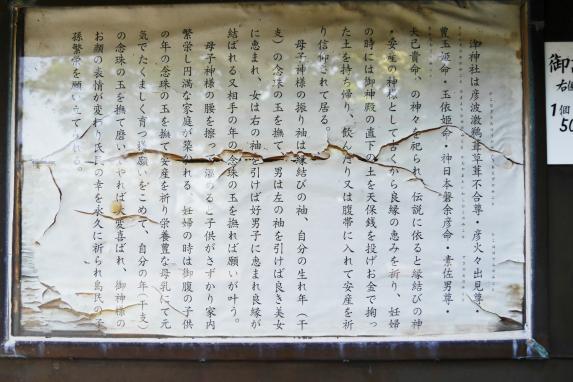 御神社は彦波瀲鵜葺草葺不合尊・彦火々出見尊・
豊玉姫命・玉依姫命・神日本磐余彦命・素佐男尊・
大己貴命 の神々を祀られ、伝説に依ると縁結びの神
・安産の神様として古くから良縁の恵みを祈り、妊婦
の時には御神殿の直下の土を天保銭を投げお金で掬っ
た土を持ち帰り、飲んだり又は腹帯に入れて安産を祈
り信仰されて居る。
母子神様の振り袖は縁結びの袖、自分の生れ年（干
支）の念珠の玉を撫で、男は左の袖を引けば良き美女
に恵まれ、女は右の袖を引けば好男子に恵まれ良縁が
結ばれる又相手の年の念珠の玉を撫れば願いが叶う。
母子神様の腰を擦って 子供がさずかり家内
繁栄し円満な家庭が築かれる 妊婦の時は御腹の子供
の年の念珠の玉を撫て安産を祈り栄養豊な母乳にて元
気でたくましく育つ様願いをこめて、自分の年（干支）
の念珠の玉を撫て磨いてやれば大変喜ばれ、御神様の
お顔の表情が変わり氏 の幸を永久に祈られ島氏の子
孫繁栄を願い る。
御
右
1個
50